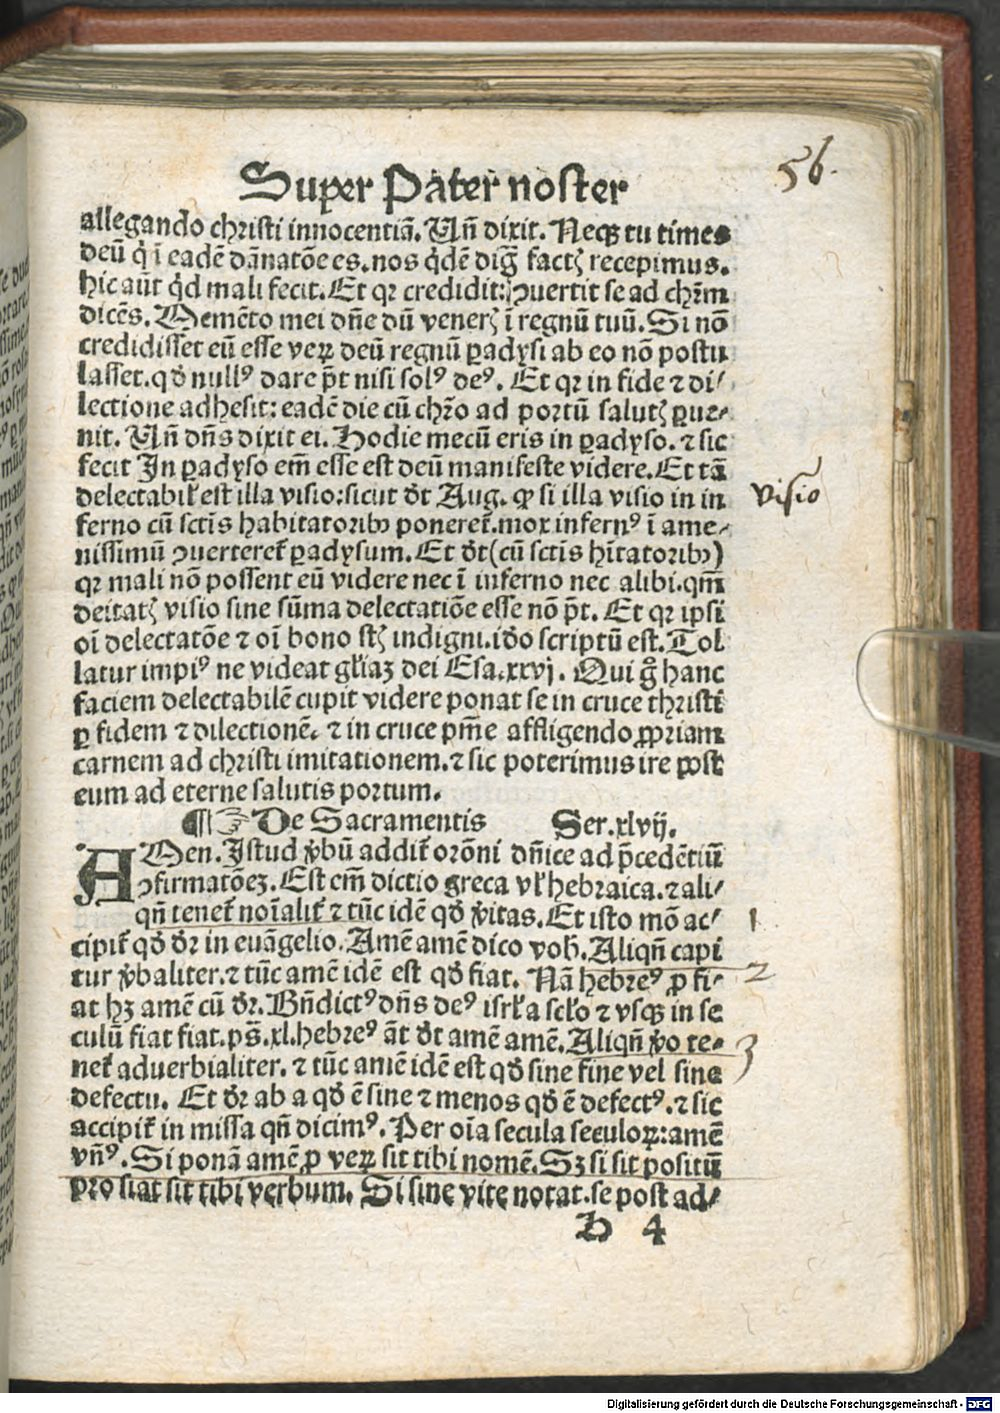 56.
Super Pater noster
allegando christi innocentiā. Vñ dixit. Neqꝫ tu times
deū q̇ ī eadē dānatōe es. nos q̇dē dig̃ factꝭ recepimus.
hic aūt q̇d mali fecit. Et qꝛ credidit: ꝯuertit se ad chr̄m
dicēs. Memēto mei dn̄e dū venerꝭ ī regnū tuū. Si nō
credidisset eū esse verꝝ deū regnū ꝑadysi ab eo nō postu
lasset. qd̓ nullꝰ dare p̄t nisi solꝰ deꝰ. Et qꝛ in fide ⁊ di⸗
lectione adhesit: eadē die cū chr̄o ad portū salutꝭ ꝑue⸗
nit. Vñ dn̄s dixit ei. Hodie mecū eris in ꝑadyso. ⁊ sic
fecit In ꝑadyso em̄ esse est deū manifeste videre. Et tā
delectabił est illa visio: sicut dt̓ Aug. ꝙ si illa visio in in
visio
ferno cū sctīs habitatoribꝫ poneret᷑. mox infernꝰ ī ame⸗
nissimū ꝯuerteret᷑ ꝑadysum. Et dt̓ (cū sctīs hītatoribꝫ)
qꝛ mali nō possent eū videre nec ī inferno nec alibi. qm̄
deitatꝭ visio sine sūma delectatiōe esse nō p̄t. Et qꝛ ipsi
oī delectatōe ⁊ oī bono sꝭ indigni. iđo scriptū est. Tol
latur impiꝰ ne videat gl̓iaꝫ dei Esa. xxvj. Qui g̊ hanc
faciem delectabilē cupit videre ponat se in cruce christi
ꝑ fidem ⁊ dilectionē. ⁊ in cruce pn̄ie affligendo ꝓpriam
carnem ad christi imitationem. ⁊ sic poterimus ire post
eum ad eterne salutis portum.
¶ ☞ De Sacramentis Ser. xlvij.
AMen. Istud v̓bū addit᷑ orōni dn̄ice ad p̄cedētiū
ꝯfirmatōeꝫ. Est em̄ dictio greca vł hebraica. ⁊ ali⸗
qn̄ tenet᷑ noīalit᷑ ⁊ tūc idē qd̓ v̓itas. Et isto mō ac⸗
1
cipit᷑ qd̓ dr̓ in euāgelio. Amē amē dico vob̓. Aliqn̄ capi
tur v̓baliter. ⁊ tūc amē idē est qd̓ fiat. Nā hebreꝰ ꝓ fi⸗
2
at hꝫ amē cū dr̓. Bn̄dictꝰ dn̄s deꝰ isrł a scło ⁊ vsqꝫ in se
culū fiat fiat. ps̄. xl. hebreꝰ āt dt̓ amē amē. Aliqn̄ v̓o te⸗
3
net᷑ aduerbialiter. ⁊ tūc amē idē est qd̓ sine fine vel sine
defectu. Et dr̓ ab a qd̓ ē sine ⁊ menos qd̓ ē defectꝰ. ⁊ sic
accipit᷑ in missa qn̄ dicimꝰ. Per oīa secula seculoꝝ: amē
vn̄ꝰ. Si ponā amē ꝓ verꝝ sit tibi nomē. Sꝫ si sit positū
pro fiat sit tibi verbum. Si sine vite notat. se post ad⸗
H 4
Digitalisierung gefördert durch die Deutsche Forschungsgemeinschaft - DFG